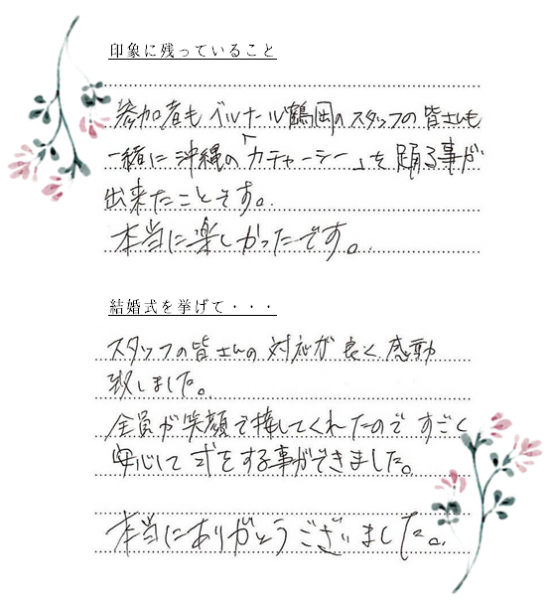 印象に残っていること
参加者もベルナール鶴岡のスタッフの皆さんも
一緒に沖縄の「カチャーシー」を踊る事が
出来たことです。
本当に楽しかったです。
結婚式を挙げて・・・
スタッフの皆さんの対応が良く感動
致しました。
全員が笑顔で接してくれたのですごく
安心して式をする事ができました。
本当にありがとうございました。